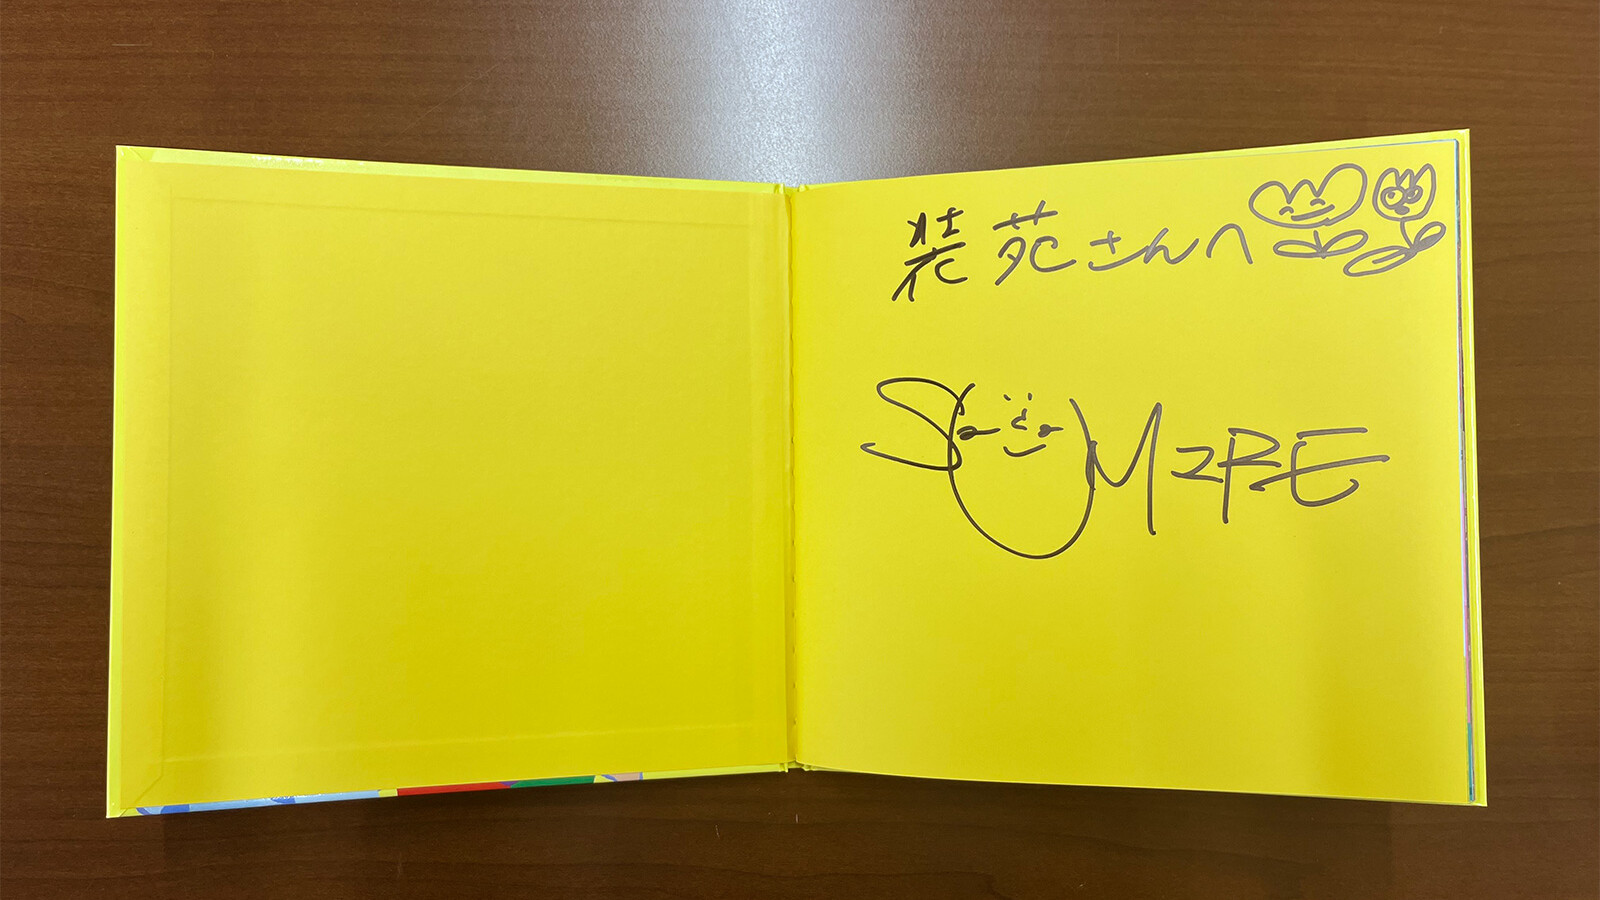 装苑さんへ
SUMIRE